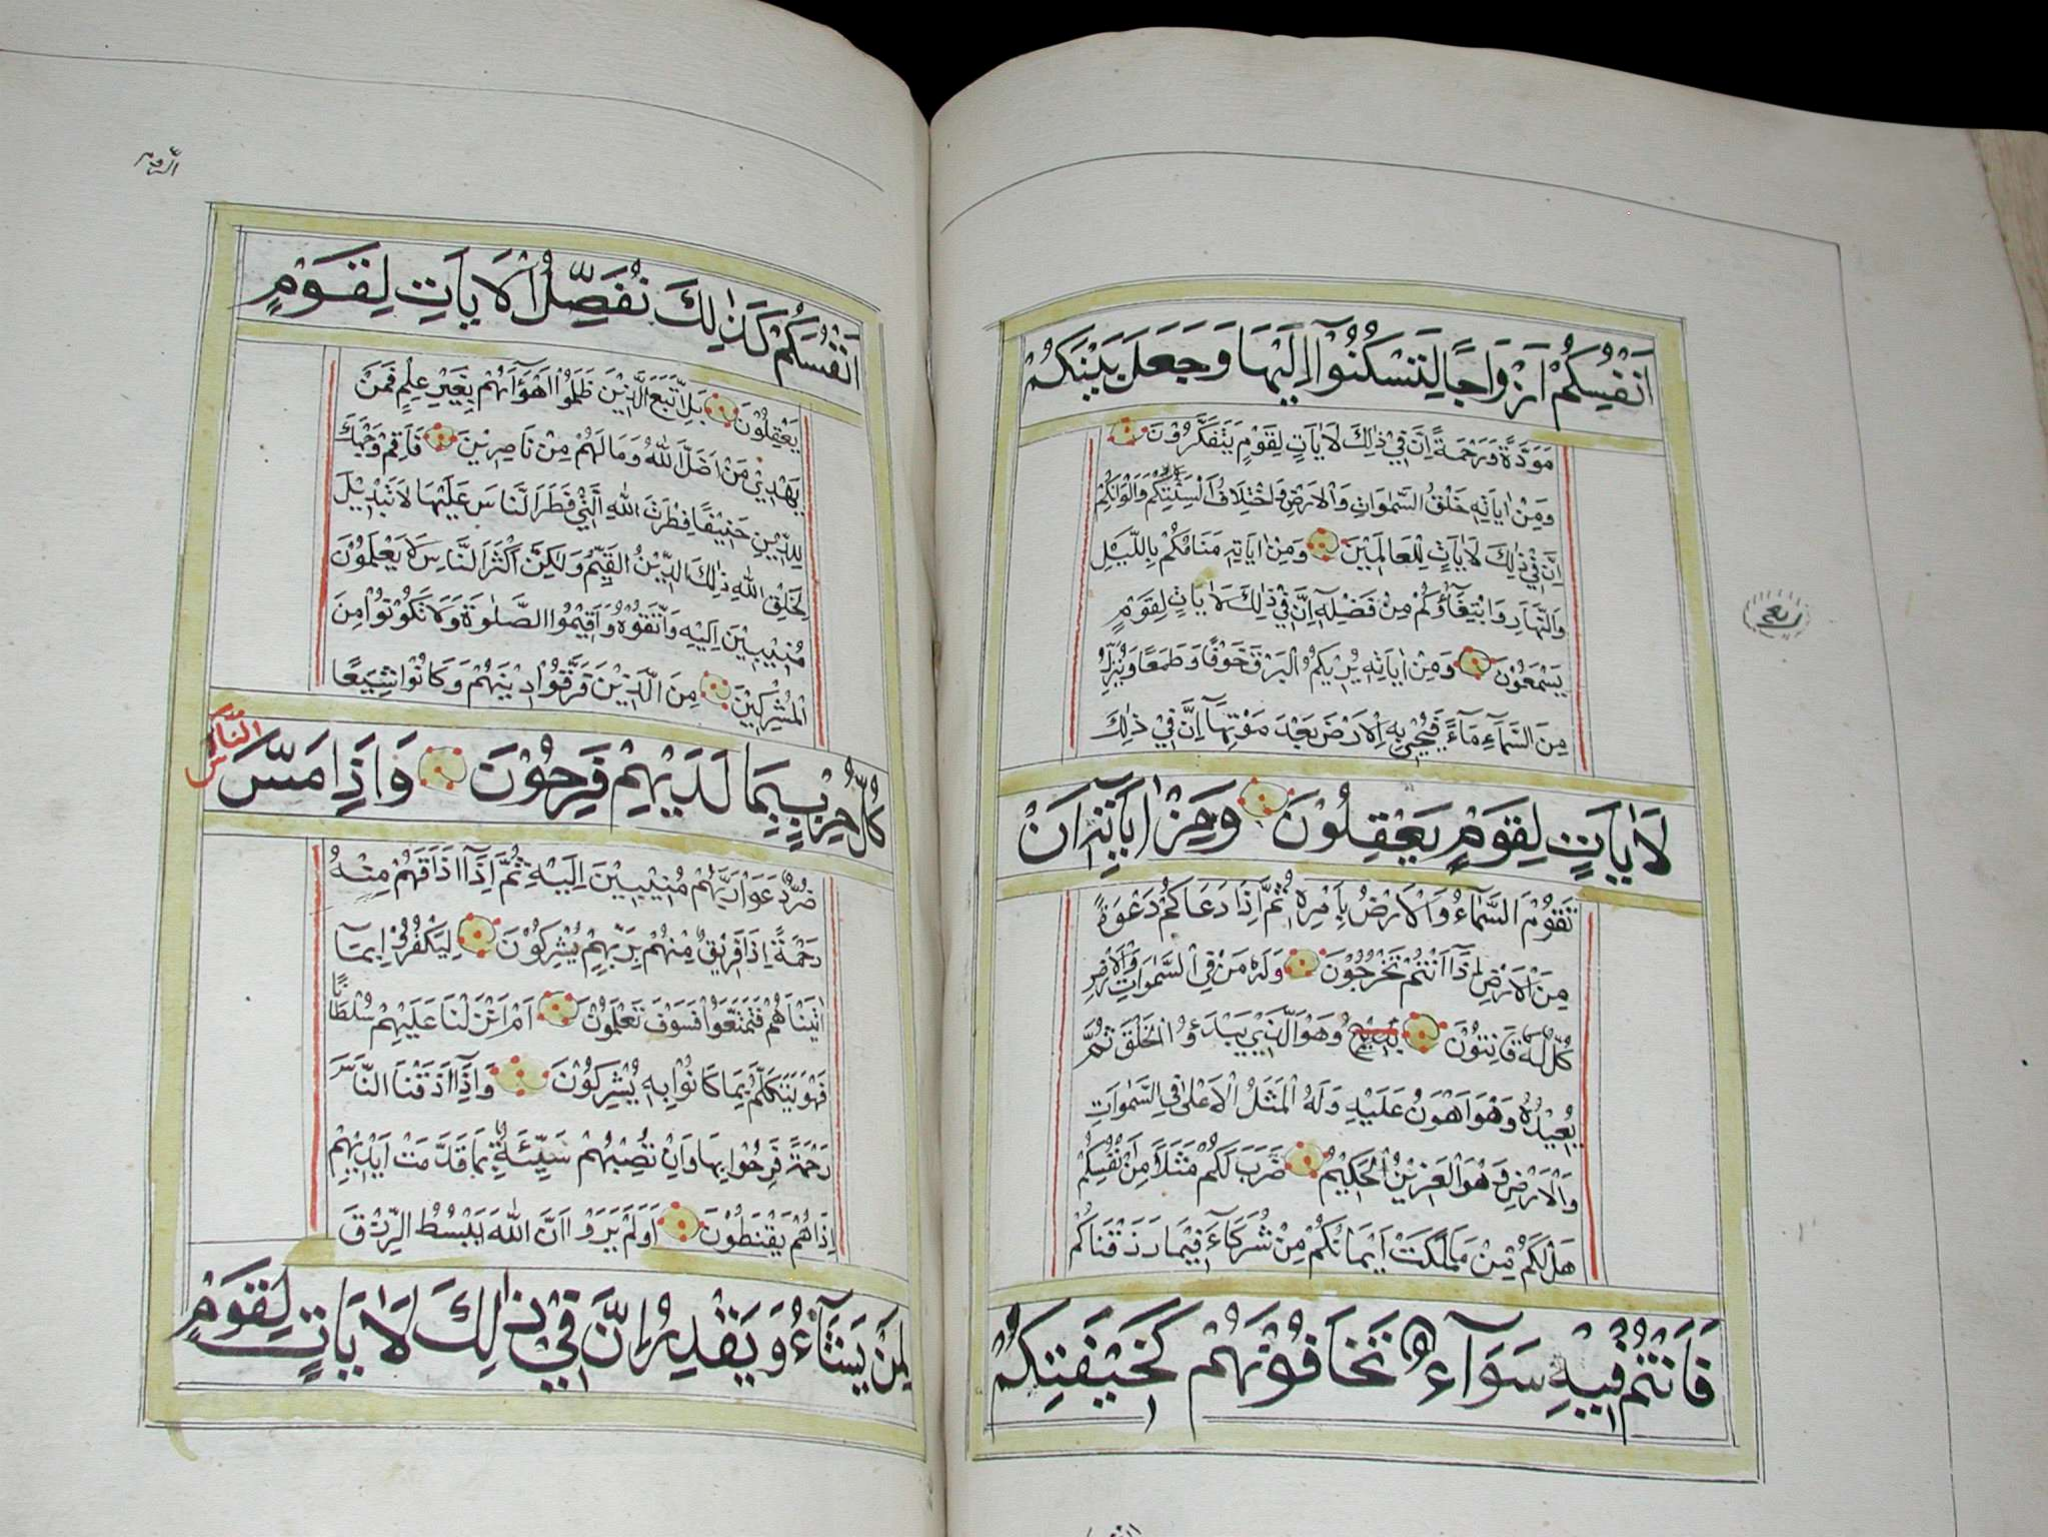 اَنْفُسِكُمْ اَزْوَاجًا لِتَسْكُنُوْٓا اِلَيْهَا وَجَعَلَ بَيْنَكُمْ
مَوَدَّةً وَرَحْمَةً اِنَّ فِيْ ذٰلِكَ لَاٰيَاتٍ لِقَوْمٍ يَتَفَكَّرُوْنَ
وَمِنْ اٰيَاتِهٖ خَلْقُ السَّمٰوَاتِ وَالْاَرْضِ وَاخْتِلَافُ اَلْسِنَتِكُمْ وَاَلْوَانِكُمْ
اِنَّ فِيْ ذٰلِكَ لَاٰيَاتٍ لِلْعَالَمِيْنَ وَمِنْ اٰيَاتِهٖ مَنَامُكُمْ بِاللَّيْلِ
وَالنَّهَارِ وَابْتِغَآؤُكُمْ مِنْ فَضْلِهٖ اِنَّ فِيْ ذٰلِكَ لَاٰيَاتٍ لِقَوْمٍ
يَسْمَعُوْنَ وَمِنْ اٰيَاتِهٖ يُرِيْكُمُ الْبَرْقَ خَوْفًا وَطَمَعًا وَيُنَزِّلُ
مِنَ السَّمَآءِ مَآءً فَيُحْيِيْ بِهِ الْاَرْضَ بَعْدَ مَوْتِهَآ اِنَّ فِيْ ذٰلِكَ
لَاٰيَاتٍ لِقَوْمٍ يَعْقِلُوْنَ وَمِنْ اٰيَاتِهٖٓ اَنْ
تَقُوْمَ السَّمَآءُ وَالْاَرْضُ بِاَمْرِهٖ ثُمَّ اِذَا دَعَاكُمْ دَعْوَةً
مِنَ الْاَرْضِ اِذَآ اَنْتُمْ تَخْرُجُوْنَ وَلَهٗ مَنْ فِي السَّمٰوَاتِ وَالْاَرْضِ
كُلٌّ لَهٗ قَانِتُوْنَ وَهُوَ الَّذِيْ يَبْدَؤُا الْخَلْقَ ثُمَّ
يُعِيْدُهٗ وَهُوَ اَهْوَنُ عَلَيْهِ وَلَهُ الْمَثَلُ الْاَعْلٰى فِي السَّمٰوَاتِ
وَالْاَرْضِ وَهُوَ الْعَزِيْزُ الْحَكِيْمُ ضَرَبَ لَكُمْ مَثَلًا مِنْ اَنْفُسِكُمْ
هَلْ لَكُمْ مِنْ مَا مَلَكَتْ اَيْمَانُكُمْ مِنْ شُرَكَآءَ فِيْمَا رَزَقْنَاكُمْ
فَاَنْتُمْ فِيْهِ سَوَآءٌ تَخَافُوْنَهُمْ كَخِيْفَتِكُمْ
ربع
الروم
اَنْفُسَكُمْ كَذٰلِكَ نُفَصِّلُ الْاٰيَاتِ لِقَوْمٍ
يَعْقِلُوْنَ بَلِ اتَّبَعَ الَّذِيْنَ ظَلَمُوْٓا اَهْوَآءَهُمْ بِغَيْرِ عِلْمٍ فَمَنْ
يَهْدِيْ مَنْ اَضَلَّ اللّٰهُ وَمَا لَهُمْ مِنْ نَاصِرِيْنَ فَاَقِمْ وَجْهَكَ
لِلدِّيْنِ حَنِيْفًا فِطْرَتَ اللّٰهِ الَّتِيْ فَطَرَ النَّاسَ عَلَيْهَا لَا تَبْدِيْلَ
لِخَلْقِ اللّٰهِ ذٰلِكَ الدِّيْنُ الْقَيِّمُ وَلٰكِنَّ اَكْثَرَ النَّاسِ لَا يَعْلَمُوْنَ
مُنِيْبِيْنَ اِلَيْهِ وَاتَّقُوْهُ وَاَقِيْمُوا الصَّلٰوةَ وَلَا تَكُوْنُوْا مِنَ
الْمُشْرِكِيْنَ مِنَ الَّذِيْنَ فَرَّقُوْا دِيْنَهُمْ وَكَانُوْا شِيَعًا
كُلُّ حِزْبٍ بِمَا لَدَيْهِمْ فَرِحُوْنَ وَاِذَا مَسَّ النَّاسَ
ضُرٌّ دَعَوْا رَبَّهُمْ مُنِيْبِيْنَ اِلَيْهِ ثُمَّ اِذَآ اَذَاقَهُمْ مِنْهُ
رَحْمَةً اِذَا فَرِيْقٌ مِنْهُمْ بِرَبِّهِمْ يُشْرِكُوْنَ لِيَكْفُرُوْا بِمَآ
اٰتَيْنَاهُمْ فَتَمَتَّعُوْا فَسَوْفَ تَعْلَمُوْنَ اَمْ اَنْزَلْنَا عَلَيْهِمْ سُلْطَانًا
فَهُوَ يَتَكَلَّمُ بِمَا كَانُوْا بِهٖ يُشْرِكُوْنَ وَاِذَآ اَذَقْنَا النَّاسَ
رَحْمَةً فَرِحُوْا بِهَا وَاِنْ تُصِبْهُمْ سَيِّئَةٌ بِمَا قَدَّمَتْ اَيْدِيْهِمْ
اِذَا هُمْ يَقْنَطُوْنَ اَوَلَمْ يَرَوْا اَنَّ اللّٰهَ يَبْسُطُ الرِّزْقَ
لِمَنْ يَشَآءُ وَيَقْدِرُ اِنَّ فِيْ ذٰلِكَ لَاٰيَاتٍ لِقَوْمٍ